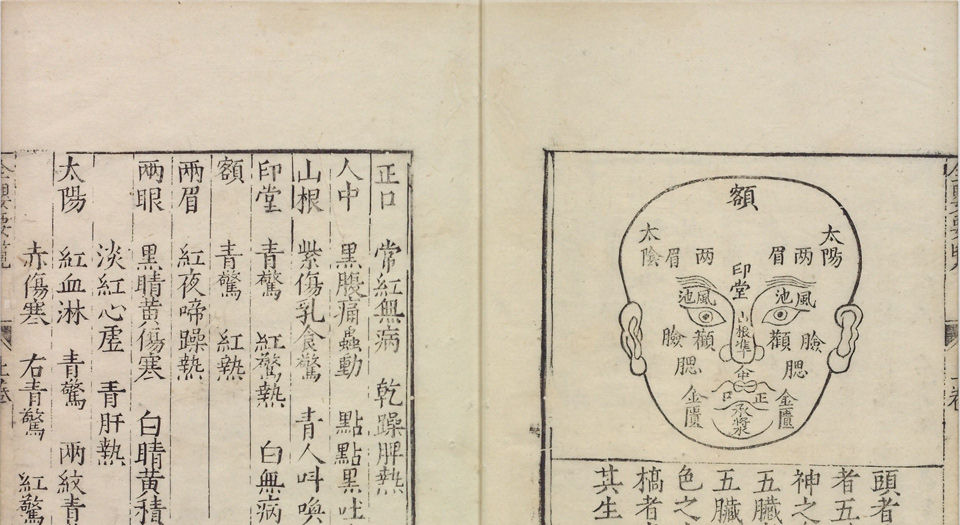 額
太陽
两眉
印堂
两眉
太陰
風池
風池
山根
準
臉
顴
顴
臉
腮
腮
金匱
金匱
正口
承漿
頭者
者五
神之
五臟
五臟
色之
槁者
其生
正口 常紅無病 乾躁脾熱
人中 黑腹痛蟲動 點點黑吐
山根 紫傷乳食驚 青人呌喚
印堂 青驚 紅驚熱 白無病
額 青驚 紅熱
兩眉 紅夜啼躁熱
兩眼 黑睛黃傷寒 白睛黃積
淡紅心虛 青肝熱
太陽 紅血淋 青驚 兩紋青
赤傷寒 右青驚 紅驚